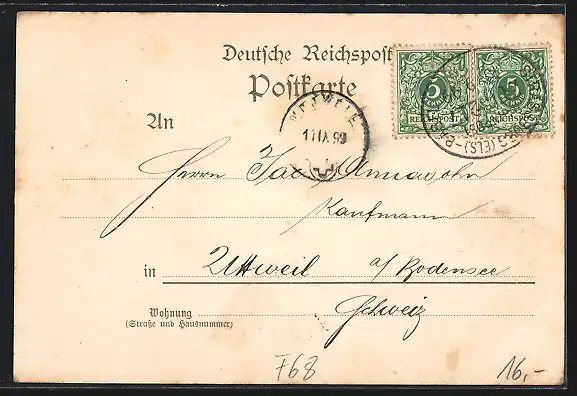 Deutsche Reichspost
Postkarte
5
REICHSPOST
5
REICHSPOST
(ELS)
17 IX 99
An
Herrn Jac. Annasohn
Kaufmann
in Uttweil a/Bodensee
Schweiz
Wohnung
(Straße und Hausnummer)
F68
16,-